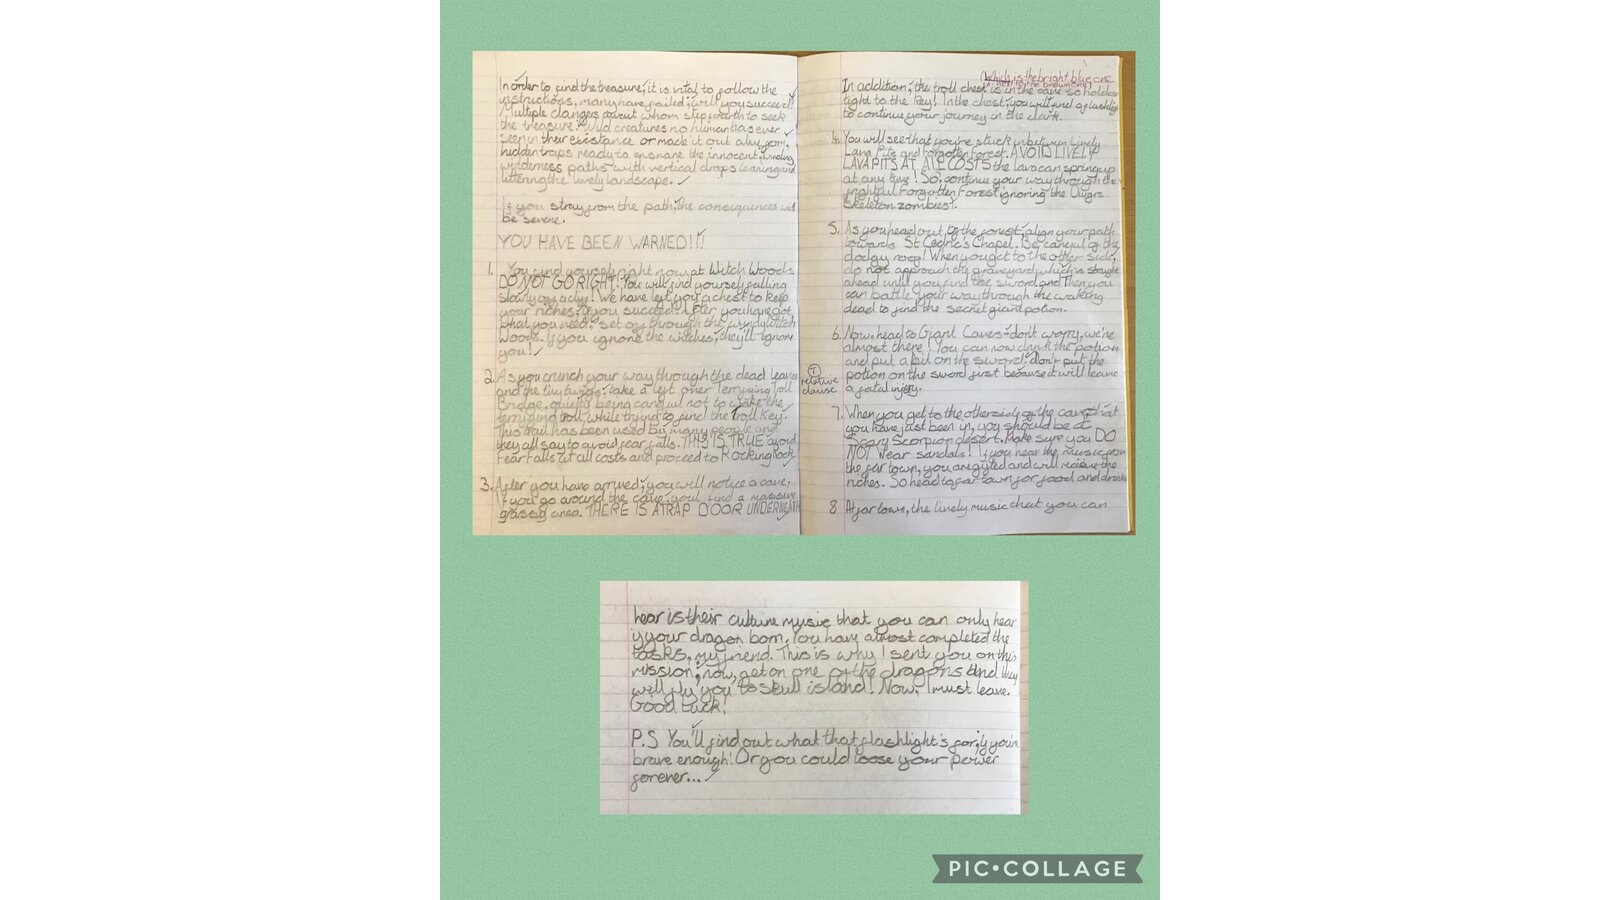 In order to find the treasure, it is vital to follow the
instructions, many have failed; will you succeed?
Multiple dangers await whom step forth to seek
the treasure: Wild creatures no human has ever
seen in their existance or made it out alive from,
hidden traps ready to ensnare the innocent, winding
wilderness paths with vertical drops leaning and
littering the lively landscape.
If you stray from the path, the consequences will
be severe.
YOU HAVE BEEN WARNED!!!
1. You find yourself right now at Witch Woods
DO NOT GO RIGHT! You will find yourself falling
slowly off a cliff! We have left you a chest to keep
your riches, if you succeed. After you have got
what you need, set off through the windy Witch
Woods. If you ignore the witches, they'll ignore
you!
2. As you crunch your way through the dead leaves
and the tiny twigs, take a left over Terrifying Toll
Bridge, quietly being careful not to wake the
terrifying troll, while trying to find the Troll Key.
This trail has been used by many people and
they all say to avoid fear falls. THIS IS TRUE avoid
Fear Falls at all costs and proceed to Rocking Rock.
3. After you have arrived, you will notice a cave,
if you go around the cave you'll find a massive
grassy area. THERE IS A TRAP DOOR UNDERNEATH
(Which is the bright blue one
not the brown one)
In addition, the troll chest is in the cave so hold on
tight to the key! In the chest, you will find a flashlight
to continue your journey in the dark.
4. You will see that you're stuck in between Lively
Lava Pits and Forgotten Forest. AVOID LIVELY
LAVA PITS AT ALL COSTS the lava can spring up
at any time! So, continue your way through the
frightful Forgotten Forest ignoring the
Skeleton zombies!
5. As you head out of the forest, align your path
towards St Cedric's Chapel. Be careful of the
dodgy roof! When you get to the other side,
do not approach the graveyard which is straight
ahead until you find the sword and Then you
can battle your way through the walking
dead to find the secret giant potion.
6. Now head to Giant Caves - don't worry, we're
almost there! You can now drink the potion
and put a bit on the sword. Don't put the
potion on the sword first because it will leave
a fatal injury.
T
relative
clause
7. When you get to the other side of the cave that
you have just been in, you should be at
Scary Scorpion desert. Make sure you DO
NOT wear sandals! If you hear the music from
the far town, you are gifted and will recieve the
riches. So head to far town for food and drinks
8 At far town, the lively music that you can
hear is their culture music that you can only hear
if your dragon born. You have almost completed the
tasks, my friend. This is why I sent you on this
mission; now, get on one of the dragons and they
will fly you to skull island! Now, I must leave.
Good luck!
P.S You'll find out what that flashlight's for, if you're
brave enough! Or you could loose your power
forever...
PIC•COLLAGE